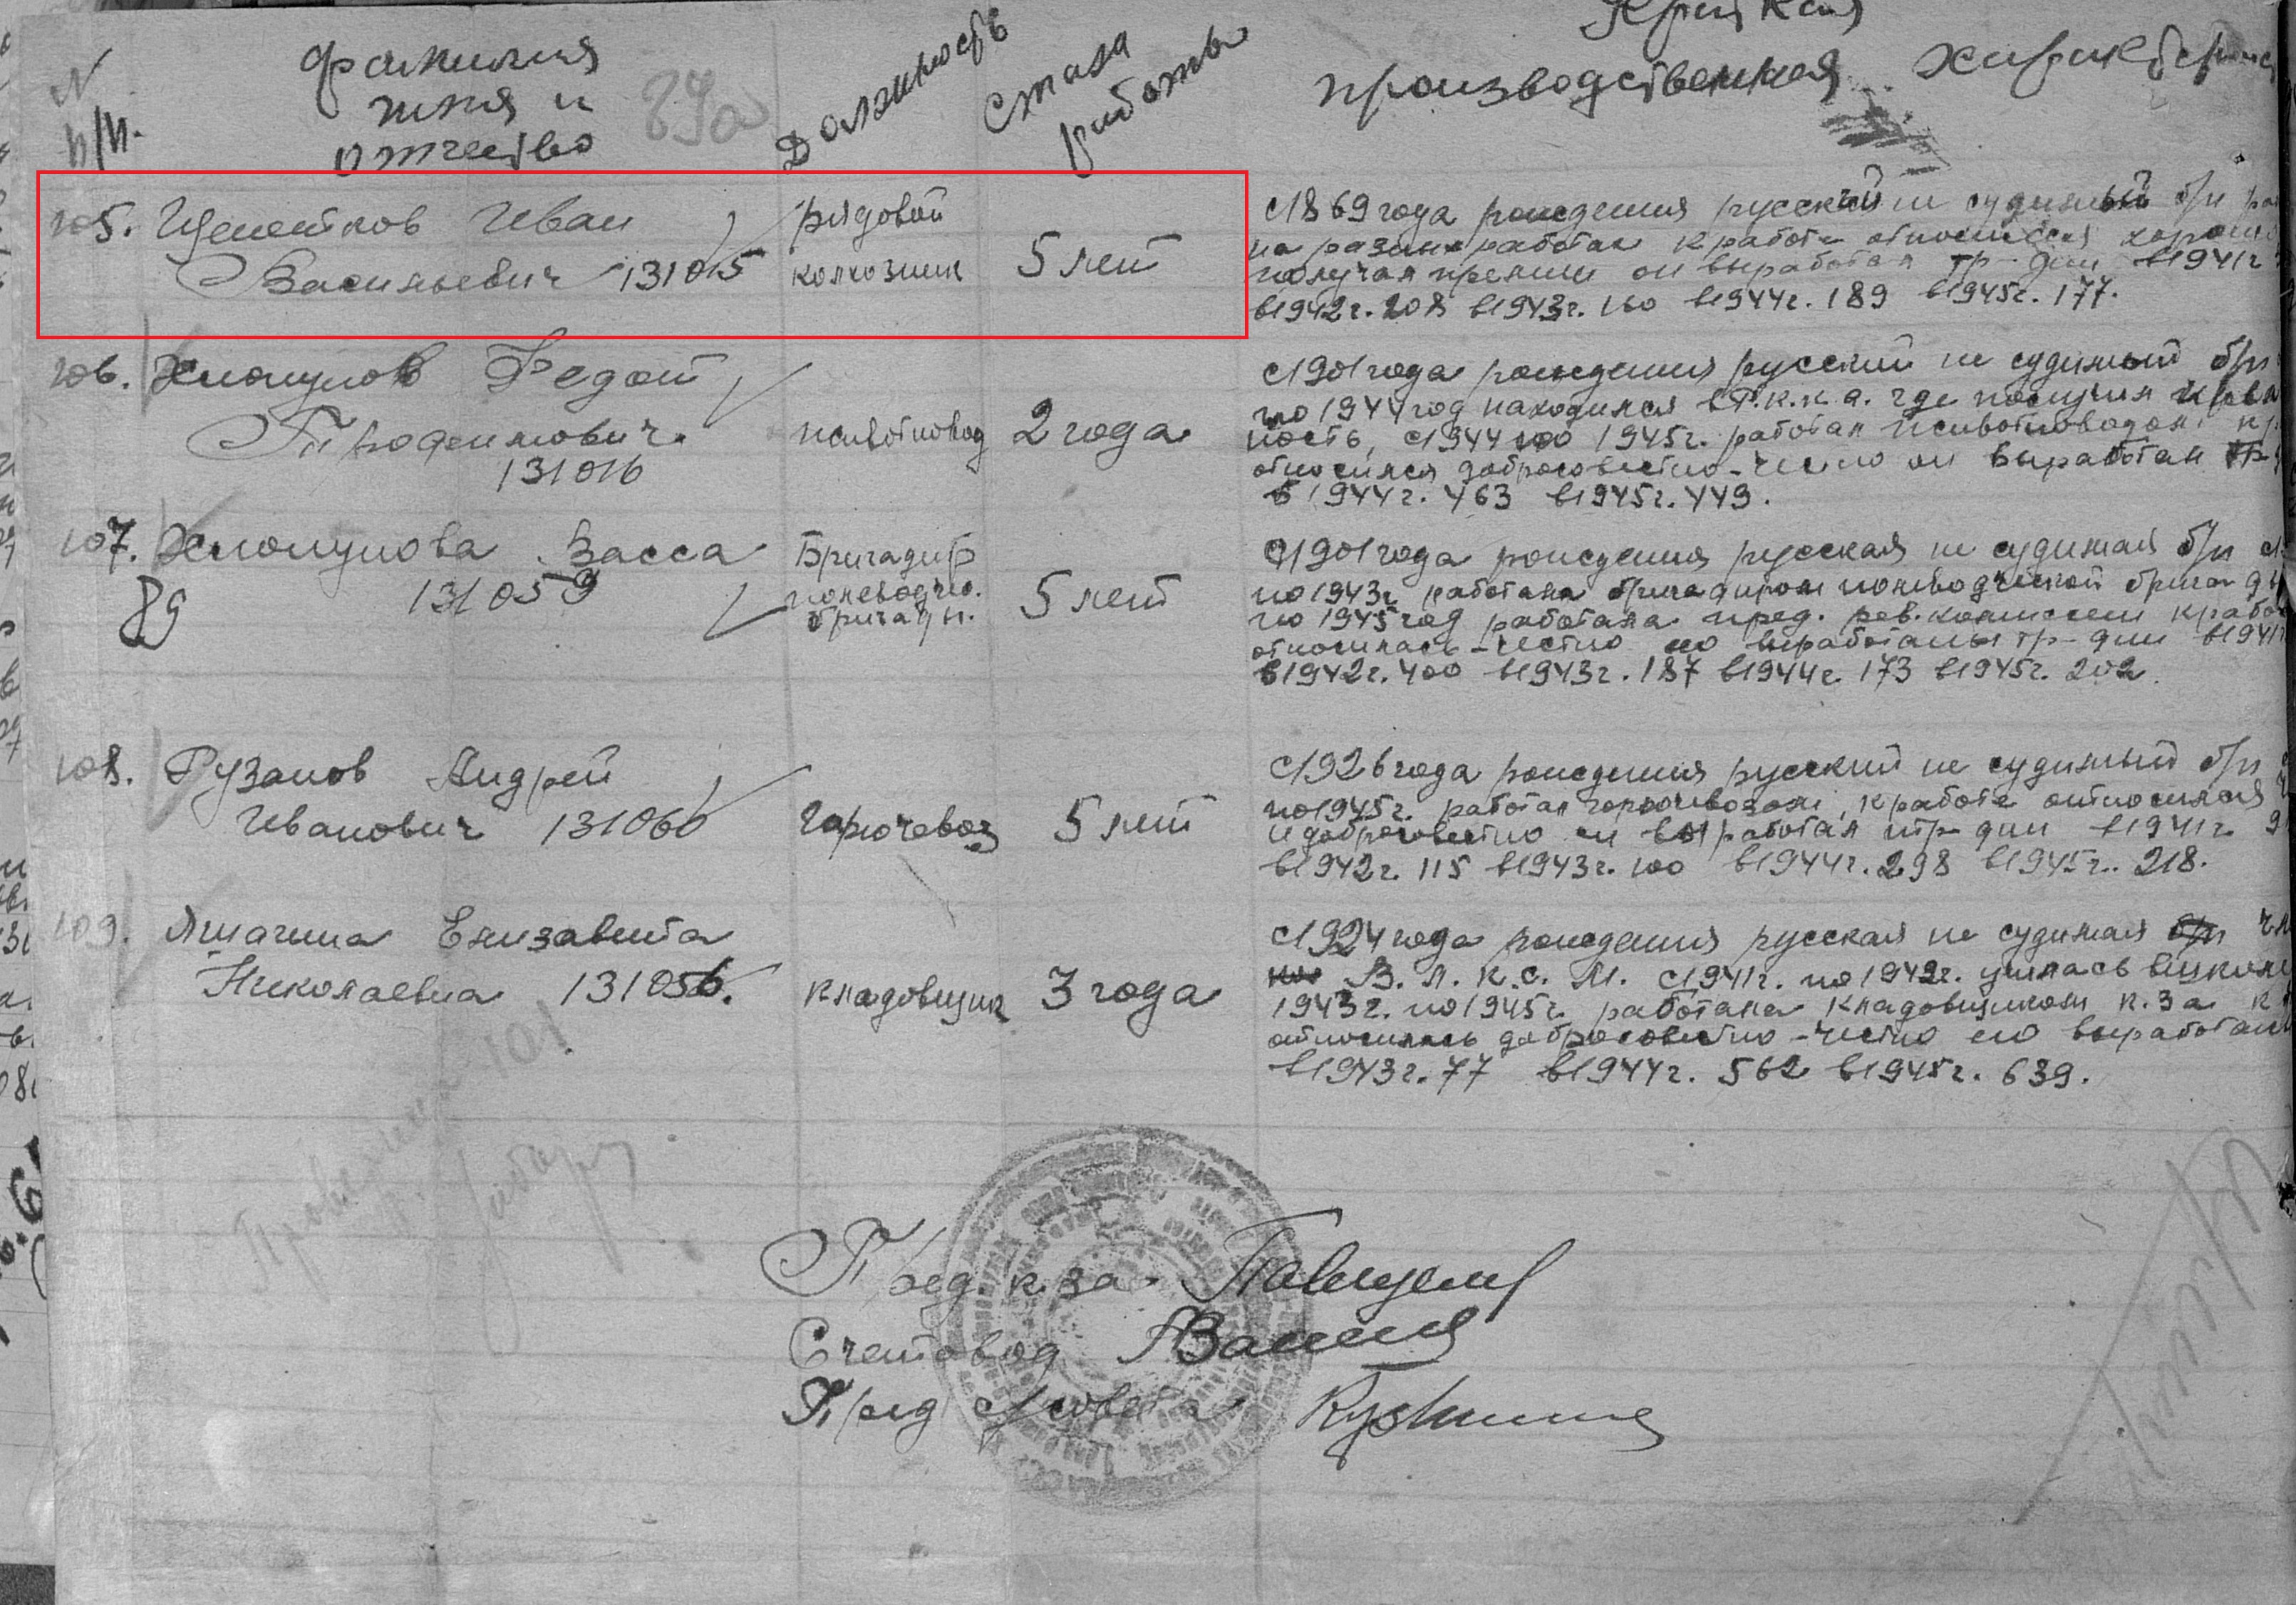 N
п/п.
Фамилия
имя и
отчество
89а
Должность
Стаж
работы
Краткая
производственная
105. Щепетков Иван
Васильевич 131015
рядовой
колхозник
5 лет
С 1869 года рождения русский не судимый б/п
на разн. работах к работе относился хорошо
получал премии он выработал тр-дни в 1941г
в 1942г. 208 в 1943г. 160 в 1944г. 189 в 1945г. 177.
106. Хлопунов Федот
Трофимович
131016
животновод
2 года
С 1901 года рождения русский не судимый б/п
по 1944 год находился в Р.К.К.А. где получил
ность, с 1944 по 1945г. работал животноводом
относился добросовестно-честно он выработал тр-
в 1944г. 463 в 1945г. 449.
107. Хлопунова Васса
131059
89
Бригадир
полеводчес.
бригады.
5 лет
С 1901 года рождения русская не судимая б/п с
по 1943г работала бригадиром полеводческой бригады
по 1945 год работала пред. рев. комиссии к работе
относилась-честно ею выработаны тр-дни в 1941г
в 1942г. 400 в 1943г. 187 в 1944г. 173 в 1945г. 202.
108. Рузанов Андрей
Иванович 131060
Горючевоз
5 лет
С 1926 года рождения русский не судимый б/п
по 1945г. работал горючевозом, к работе относился
и добросовестно он выработал тр-дни в 1941г
в 1942г. 115 в 1943г. 100 в 1944г. 298 в 1945г. 218.
109. Лшагина Елизавета
Николаевна 131056.
кладовщик
3 года
С 1924 года рождения русская не судимая
В. Л. К. С. М. С 1941г. по 1942г. училась в школе
1943г. по 1945г. работала кладовщиком к-за к
относилась добросовестно-честно ею выработаны
в 1943г. 77 в 1944г. 562 в 1945г. 639.
Пред. к-за
Счетовод
Пред с/совета